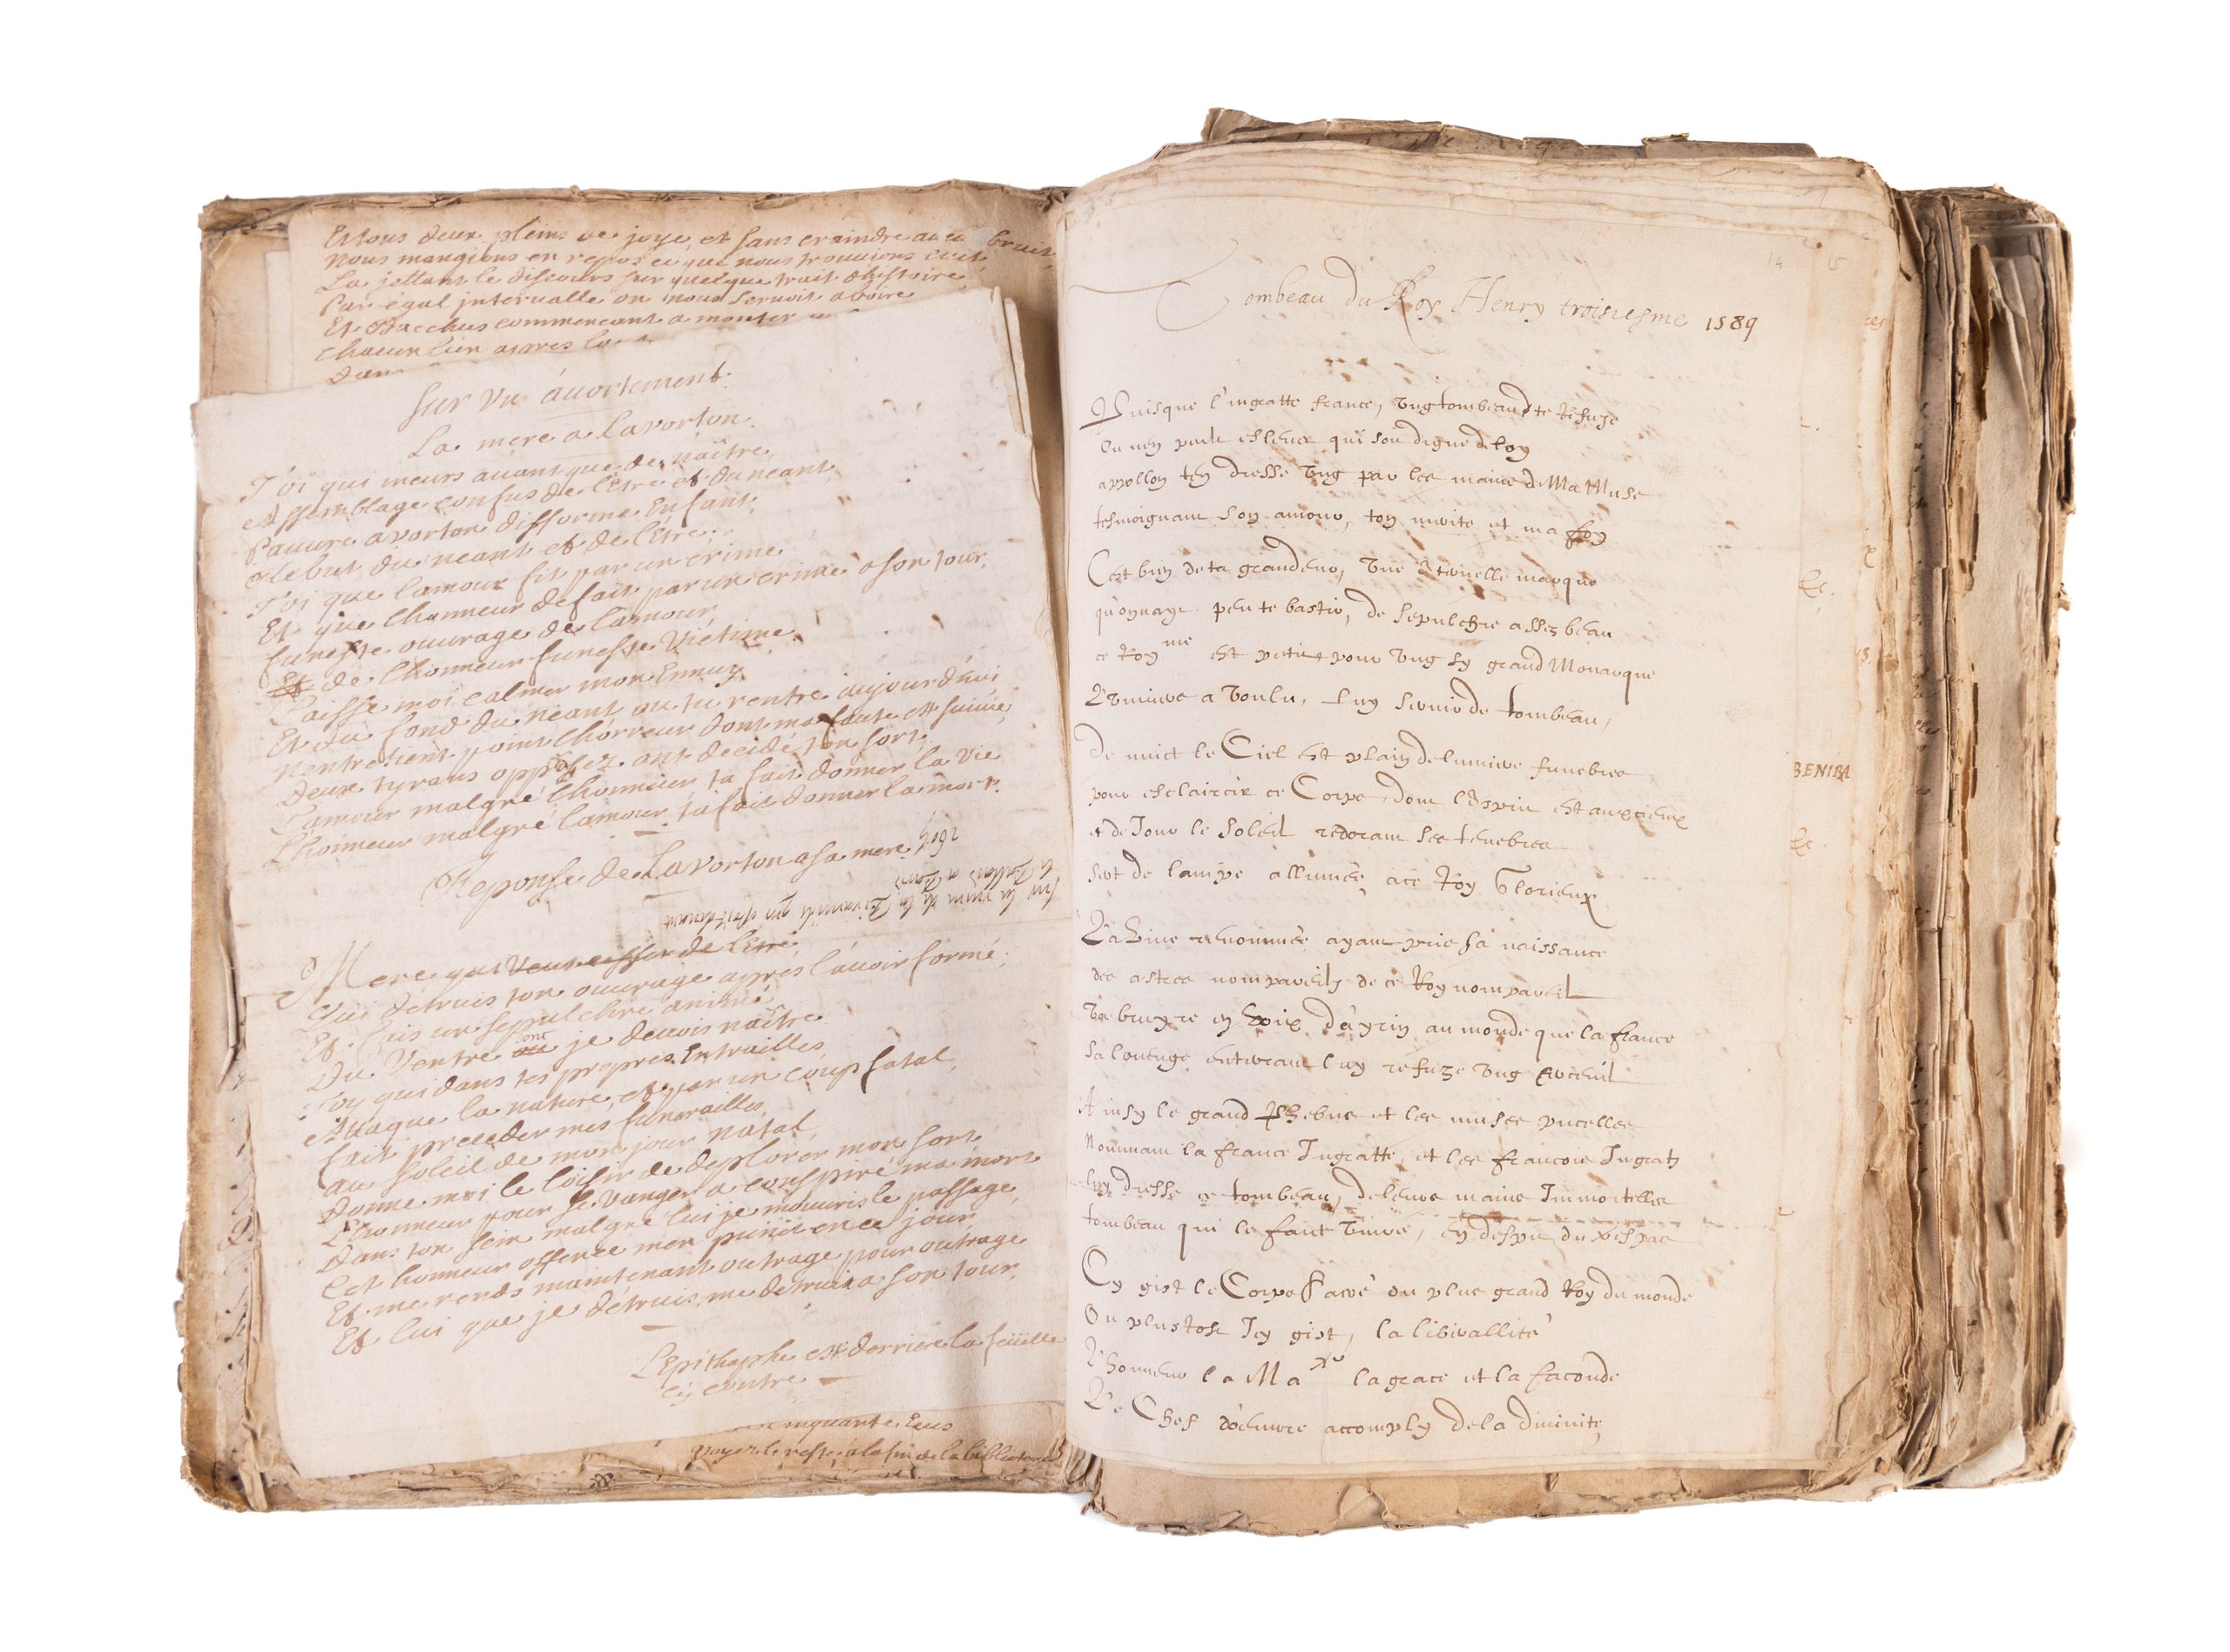 Et tous deux pleins de joye, et sans craindre aucu bruit,
Nous mangions en repos ce que nous trouvions cuit,
La jettant le discours sur quelque trait dhistoire,
Par égal jntervalle on nous servoit a boire
Et Bacchus commencant a monter
chacun
dan
Sur vn avortement.
La mere a lavorton.
Toi qui meurs avant que de naître,
Assemblage confus de lêtre et du neant,
Pauvre avorton difforme Enfant,
Rebut du neant et de lêtre;
Toi que lamour fit par un crime
Et que lhonneur defait par un crime a son tour,
funeste ouvrage de lamour,
de lhonneur funeste Victime.
Laisse moi calmer mon Ennuy
Et du fond du neant ou tu rentre aujourdhui
Nentretient point lhorreur dont ma faute est suivie,
Deux tyrans opposez ont decidé ton sort,
L'amour malgré lhonneur ta fait donner la vie
L'honneur malgré lamour ta fait donner la mort.
Reponse de Lavorton a sa mere
Mere qui veut de lEtre,
Qui détruis ton ouvrage apres l'avoir formé;
Et fais un sepulchre animé
Du Ventre dont je devois naître
Toy qui dans tes propres Entrailles
Attaque la nature, et par un coup fatal,
fait preceder mes funerailles,
Au soleil de mon jour natal,
Donne moi le loisir de deplorer mon sort
L'honneur pour se vanger a conspiré ma mort
Dans ton sein malgré lui je mouvris le passage,
Cet honneur offencé men punit en ce jour
Et me rends maintenant outrage pour outrage
Et lui que je détruis, me detruit a son tour,
L'Epithaphe est derriere la feüille
cy contre
cinquante Ecus
voyez le reste a la fin de la
14 15
Tombeau du Roy Henry troisiesme 1589
Puisque l'ingratte france, ung tombeau te refuze
Ou nen peult eslever qui soit digne de toy
appollon ten dresse ung par les mains de Ma Muse
tesmoignant son amour, ton merite et ma foy
C'est bien de ta grandeur, une eternelle marque
qu'on naye peu te bastir, de sepulchre assez beau
ce Roy me est petit pour ung sy grand Monarque
L'univers a voulu, luy servir de tombeau,
De nuict le Ciel est plain de lumiere funebres
pour esclaircir ce Corps, dont l'esprit est aux cieux
et de Jour le soleil redorant ses tenebres
sert de lampe allumée, a ce Roy Glorieux
La vive renommée ayant pris sa naissance
des astres nompareilz de ce Roy nompareil
Va bruyre en voix d'ayrin au monde que la france
sa louenge enterrant luy refuze ung cerceuil
Ainsy le grand Phebus et les muses pucelles
Nommant la france Ingratte, et les francois Ingratz
luy dresse ce tombeau, de leurs mains Immortelles
tombeau qui le faict vivre, en despit du trespas
Cy gist le Corps Sacré du plus grand Roy du monde
Ou plustost Icy gist, la liberallité
L'honneur la Ma te la grace et la faconde
Le Chef d'oeuvre accomply de la divinité,
BENIRA